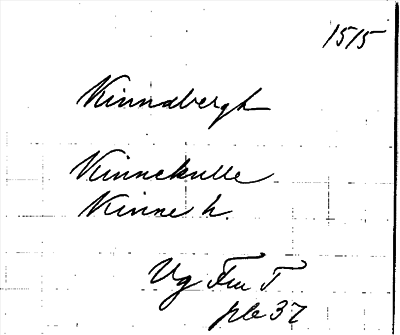 1515
Kinnabergh
Kinnekulle
Kinne h.
Vg Fru T
plb 37